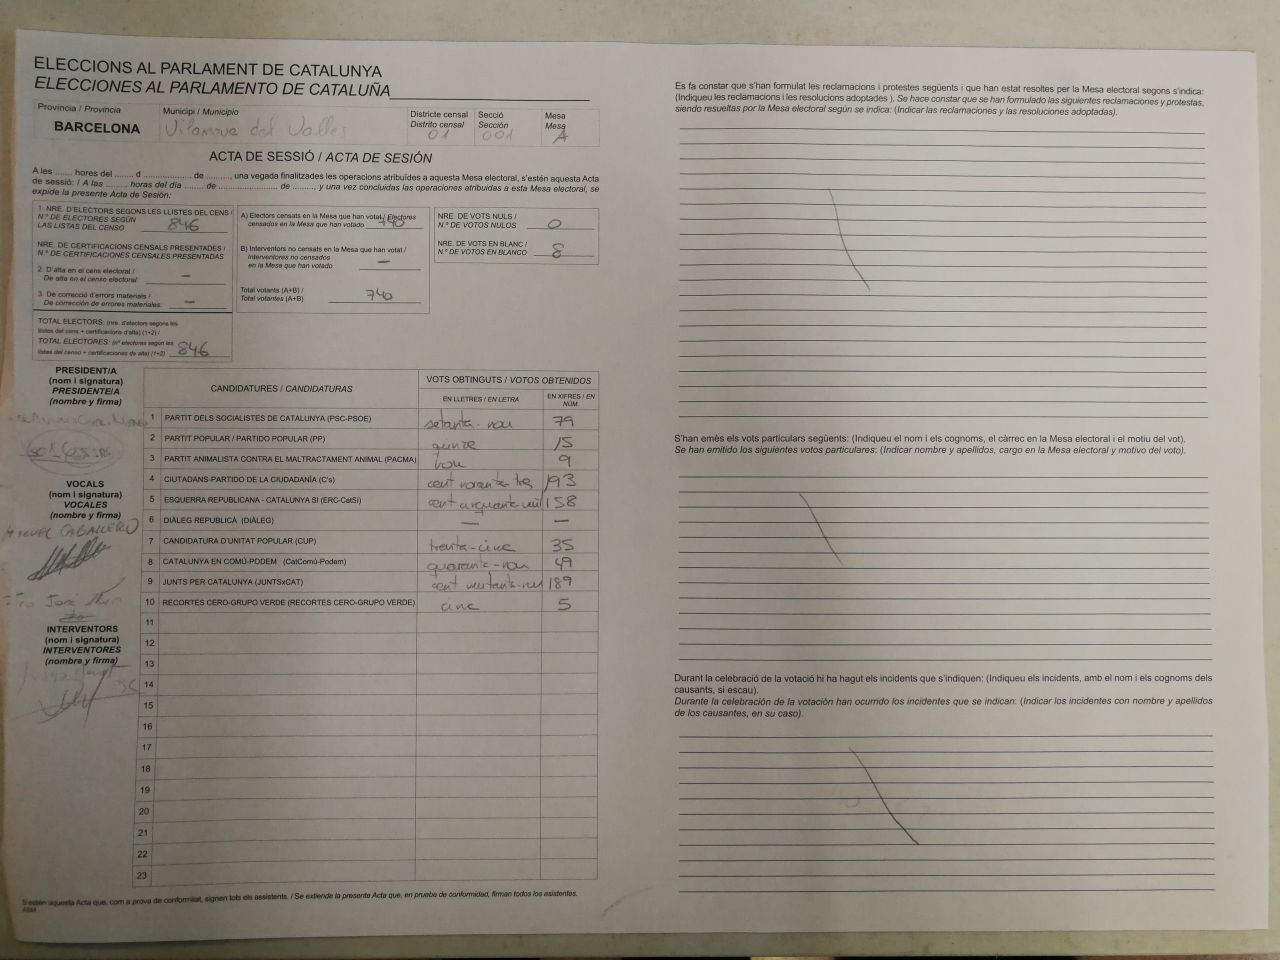 ELECCIONS AL PARLAMENT DE CATALUNYA
ELECCIONES AL PARLAMENTO DE CATALUÑA
Província / Provincia
BARCELONA
Municipi / Municipio
Vilanova del Valles
Districte censal
Distrito censal
01
Secció
Sección
001
Mesa
Mesa
A
ACTA DE SESSIÓ / ACTA DE SESIÓN
A les ....... hores del ...... d ...................... de ........., una vegada finalitzades les operacions atribuïdes a aquesta Mesa electoral, s'estén aquesta Acta
de sessió: / A las ........ horas del día ....... de ........................ de ........, y una vez concluidas las operaciones atribuidas a esta Mesa electoral, se
expide la presente Acta de Sesión:
1. NRE. D'ELECTORS SEGONS LES LLISTES DEL CENS /
N.º DE ELECTORES SEGÚN
LAS LISTAS DEL CENSO 846
NRE. DE CERTIFICACIONS CENSALS PRESENTADES /
N.º DE CERTIFICACIONES CENSALES PRESENTADAS
2. D'alta en el cens electoral /
De alta en el censo electoral: —
3. De correcció d'errors materials /
De corrección de errores materiales: —
TOTAL ELECTORS: (nre. d'electors segons les
llistes del cens + certificacions d'alta) (1+2) /
TOTAL ELECTORES: (nº electores según las
listas del censo + certificaciones de alta) (1+2) 846
A) Electors censats en la Mesa que han votat / Electores
censados en la Mesa que han votado 740
B) Interventors no censats en la Mesa que han votat /
Interventores no censados
en la Mesa que han votado —
Total votants (A+B) /
Total votantes (A+B) 740
NRE. DE VOTS NULS /
N.º DE VOTOS NULOS 0
NRE. DE VOTS EN BLANC /
N.º DE VOTOS EN BLANCO 8
PRESIDENT/A
(nom i signatura)
PRESIDENTE/A
(nombre y firma)
VOCALS
(nom i signatura)
VOCALES
(nombre y firma)
MIGUEL CABALLERO
José
INTERVENTORS
(nom i signatura)
INTERVENTORES
(nombre y firma)
CANDIDATURES / CANDIDATURAS
VOTS OBTINGUTS / VOTOS OBTENIDOS
EN LLETRES / EN LETRA
EN XIFRES / EN NÚM.
1 PARTIT DELS SOCIALISTES DE CATALUNYA (PSC-PSOE) setanta-nou 79
2 PARTIT POPULAR / PARTIDO POPULAR (PP) quinze 15
3 PARTIT ANIMALISTA CONTRA EL MALTRACTAMENT ANIMAL (PACMA) nou 9
4 CIUTADANS-PARTIDO DE LA CIUDADANÍA (C's) cent noranta tres 193
5 ESQUERRA REPUBLICANA - CATALUNYA SI (ERC-CatSí) cent cinquanta-vuit 158
6 DIÀLEG REPUBLICÀ (DIÀLEG) — —
7 CANDIDATURA D'UNITAT POPULAR (CUP) trenta-cinc 35
8 CATALUNYA EN COMÚ-PODEM (CatComú-Podem) quaranta-nou 49
9 JUNTS PER CATALUNYA (JUNTSxCAT) cent vuitanta-nou 189
10 RECORTES CERO-GRUPO VERDE (RECORTES CERO-GRUPO VERDE) cinc 5
11
12
13
14
15
16
17
18
19
20
21
22
23
S'estén aquesta Acta que, com a prova de conformitat, signen tots els assistents. / Se extiende la presente Acta que, en prueba de conformidad, firman todos los asistentes.
Es fa constar que s'han formulat les reclamacions i protestes següents i que han estat resoltes per la Mesa electoral segons s'indica:
(Indiqueu les reclamacions i les resolucions adoptades ). Se hace constar que se han formulado las siguientes reclamaciones y protestas,
siendo resueltas por la Mesa electoral según se indica: (Indicar las reclamaciones y las resoluciones adoptadas).
S'han emès els vots particulars següents: (Indiqueu el nom i els cognoms, el càrrec en la Mesa electoral i el motiu del vot).
Se han emitido los siguientes votos particulares: (Indicar nombre y apellidos, cargo en la Mesa electoral y motivo del voto).
Durant la celebració de la votació hi ha hagut els incidents que s'indiquen: (Indiqueu els incidents, amb el nom i els cognoms dels
causants, si escau).
Durante la celebración de la votación han ocurrido los incidentes que se indican: (Indicar los incidentes con nombre y apellidos
de los causantes, en su caso).